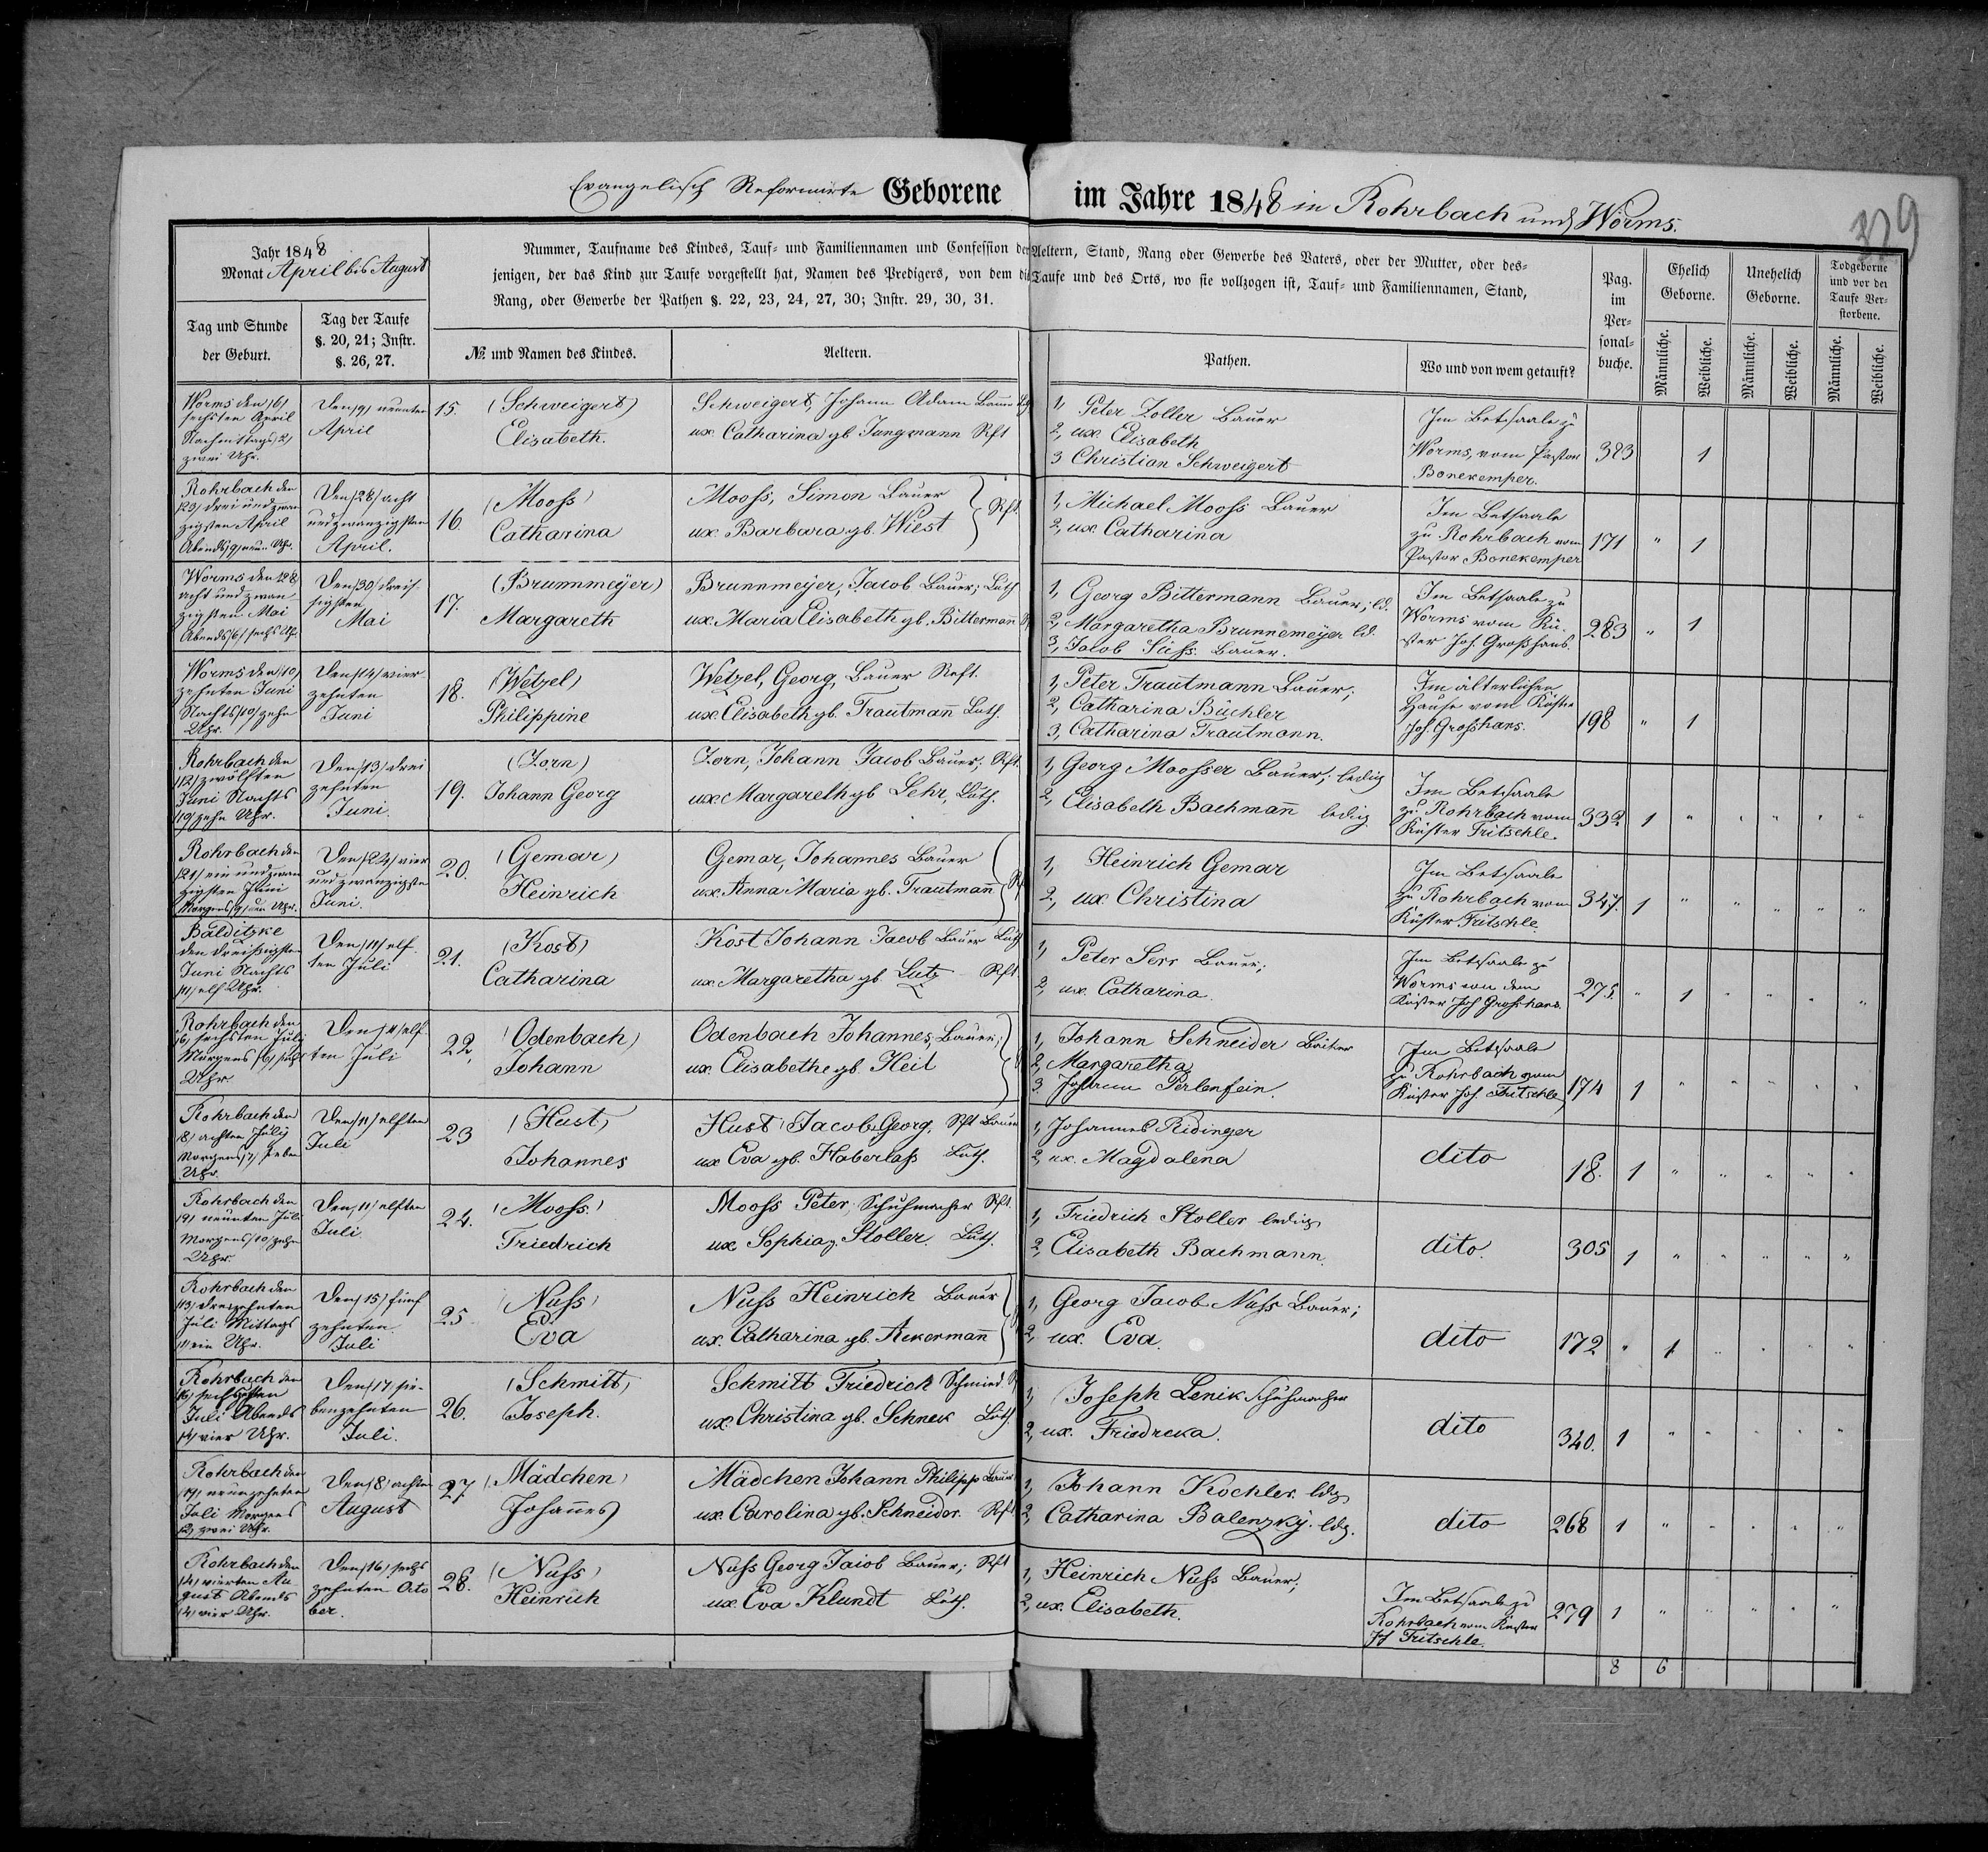 Evangelisch Reformirte Geborene im Jahre 1848 in Rohrbach und Worms.
329
Jahr 1848
Monat April bis August
Nummer, Taufname des Kindes, Tauf- und Familiennamen und Confession der Aeltern, Stand, Rang oder Gewerbe des Vaters, oder der Mutter, oder des-
jenigen, der das Kind zur Taufe vorgestellt hat, Namen des Predigers, von dem die Taufe und des Orts, wo sie vollzogen ist, Tauf- und Familiennamen, Stand,
Rang, oder Gewerbe der Pathen §. 22, 23, 24, 27, 30; Instr. 29, 30, 31.
Tag und Stunde
der Geburt.
Tag der Taufe
§. 20, 21; Instr.
§. 26, 27.
№ und Namen des Kindes.
Aeltern.
Pathen.
Wo und von wem getauft?
Pag.
im
Per-
sonal-
buche.
Ehelich
Geborne.
Unehelich
Geborne.
Todgeborne
und vor der
Taufe Ver-
storbene.
Männliche.
Weibliche.
Männliche.
Weibliche.
Männliche.
Weibliche.
Worms den /6/
sechsten April
Nachmittags /2/
zwei Uhr.
Den /9/ neunten
April
15.
(Schweigert)
Elisabeth.
Schweigert, Johann Adam Bauer
ux. Catharina gb. Jungmann Rft
1, Peter Zoller Bauer
2, ux. Elisabeth
3 Christian Schweigert
Im Betsaale zu
Worms, vom Pastor
Bonekemper.
383
1
Rohrbach den
/23/ drei und zwan
zigsten April
Abends /9/ neun Uhr.
Den /28/ acht
und zwanzigsten
April.
16.
(Mooss)
Catharina
Mooss, Simon Bauer
ux. Barbara gb. Wiest } Rft.
1, Michael Mooss Bauer
2, ux. Catharina
Im Betsaale
zu Rohrbach vom
Pastor Bonekemper
171
" 1
Worms den /28/
acht und zwan
zigsten Mai
Abends /6/ sechs Uhr
Den /30/ dreis-
sigsten
Mai
17.
(Brunnmeÿer)
Margareth
Brunnmeÿer, Jacob Bauer; Luth
ux. Maria Elisabeth gb. Bittermañ
1, Georg Bittermann Bauer; ld.
2, Margaretha Brunnemeÿer ld.
3, Jakob Süss Bauer.
Im Betsaale zu
Worms vom Kü-
ster Joh. Großhans.
283
" 1
Worms den /10/
zehnten Juni
Nachts /10/ zehn
Uhr.
Den /14/ vier
zehnten
Juni
18.
(Wetzel)
Philippine
Wetzel, Georg, Bauer Reft.
ux. Elisabeth gb. Trautmañ Luth.
1, Peter Trautmann Bauer;
2, Catharina Büchler
3, Catharina Trautmann.
Im älterlichen
Hause vom Küster
Joh. Grosshans.
198
" 1
Rohrbach den
/12/ zwölften
Juni Nachts
/10/ zehn Uhr.
Den /13/ drei
zehnten
Juni.
19.
(Zorn)
Johann Georg
Zorn, Johann Jacob Bauer; Rft.
ux. Margareth gb Lehr, Luth.
1, Georg Moosser Bauer; ledig
2, Elisabeth Bachmañ ledig
Im Betsaale
zu Rohrbach vom
Küster Fritschle.
332
1 " " " " "
Rohrbach den
/21/ ein und zwan
zigsten Juni
Morgens /9/ neun Uhr.
Den /24/ vier
und zwanzigsten
Juni.
20.
(Gemar)
Heinrich
Gemar, Johannes Bauer
ux. Anna Maria gb. Trautmañ
1, Heinrich Gemar
2, ux Christina
Im Betsaale
zu Rohrbach vom
Küster Fritschle.
347.
1 " " " " "
Balditzke
den dreißigsten
Juni Nachts
/11/ elf Uhr.
Den /11/ elf
ten Juli
21.
(Kost)
Catharina
Kost Johann Jacob Bauer Luth
ux. Margaretha gb. Lutz Rft
1, Peter Serr Bauer;
2, ux. Catharina.
Im Betsaale zu
Worms von dem
Küster Joh Grosshans.
275.
" 1 " " " "
Rohrbach den
/6/ sechsten Juli
Morgens /6/ sechs
Uhr.
Den /11/ elf
ten Juli
22,
(Odenbach)
Johann
Odenbach Johannes, Bauer;
ux. Elisabethe gb. Heil
1, Johann Schneider
2, Margaretha
3. Johann Perlenfein.
Im Betsaale
zu Rohrbach vom
Küster Joh Fritschle
174
1 " " " " "
Rohrbach den
/8/ achten July
Morgens /7/ sieben
Uhr.
Den /11/ elften
Juli
23
(Hust)
Johannes
Hust Jacob Georg, Rft Bauer
ux Eva gb. Haberlass Luth.
1, Johannes Ridinger
2, ux. Magdalena
dito
18.
1 " " " " "
Rohrbach den
/9/ neunten Juli
Morgens /10/ zehn
Uhr.
Den /11/ elften
Juli.
24.
(Mooss)
Friedrich
Mooss Peter, Schuhmacher Rft.
ux Sophia g. Stoller. Luth.
1, Friedrich Stoller ledig
2, Elisabeth Bachmann.
dito.
305
1 " " " " "
Rohrbach den
/13/ dreizehnten
Juli Mittags
/1/ ein Uhr.
Den /15/ fünf
zehnten
Juli
25.
(Nuss)
Eva
Nuss Heinrich Bauer
ux. Catharina gb. Ackermañ
1, Georg Jacob Nuss Bauer;
2, ux. Eva.
dito
172
" 1 " " " "
Rohrbach den
/16/ sechszehnten
Juli Abends
/4/ vier Uhr.
Den /17/ sie-
benzehnten
Juli.
26.
(Schmitt)
Joseph.
Schmitt Friedrich Schmied
ux. Christina gb. Schneck Luth.
1, Joseph Lenik Schuhmacher
2, ux. Friedreka.
dito
340.
1 " " " " "
Rohrbach den
/19/ neunzehnten
Juli Morgens
/2/ zwei Uhr.
Den /8/ achten
August
27.
(Mädchen)
Johañes
Mädchen Johann Philipp Bauer
ux. Carolina gb. Schneider. Rft.
1, Johann Kochler. ldg
2, Catharina Balenzkÿ. ldg.
dito
268
1 " " " " "
Rohrbach den
/4/ vierten Au
gust Abends
/4/ vier Uhr.
Den /16/ sechs
zehnten Octo
ber.
28.
(Nuss)
Heinrich
Nuss Georg Jacob Bauer; Rft
ux. Eva Klundt Luth.
1, Heinrich Nuss Bauer;
2, ux. Elisabeth.
Im Betsaale zu
Rohrbach vom Küster
Joh Fritschle.
279
1 " " " " "
8 6